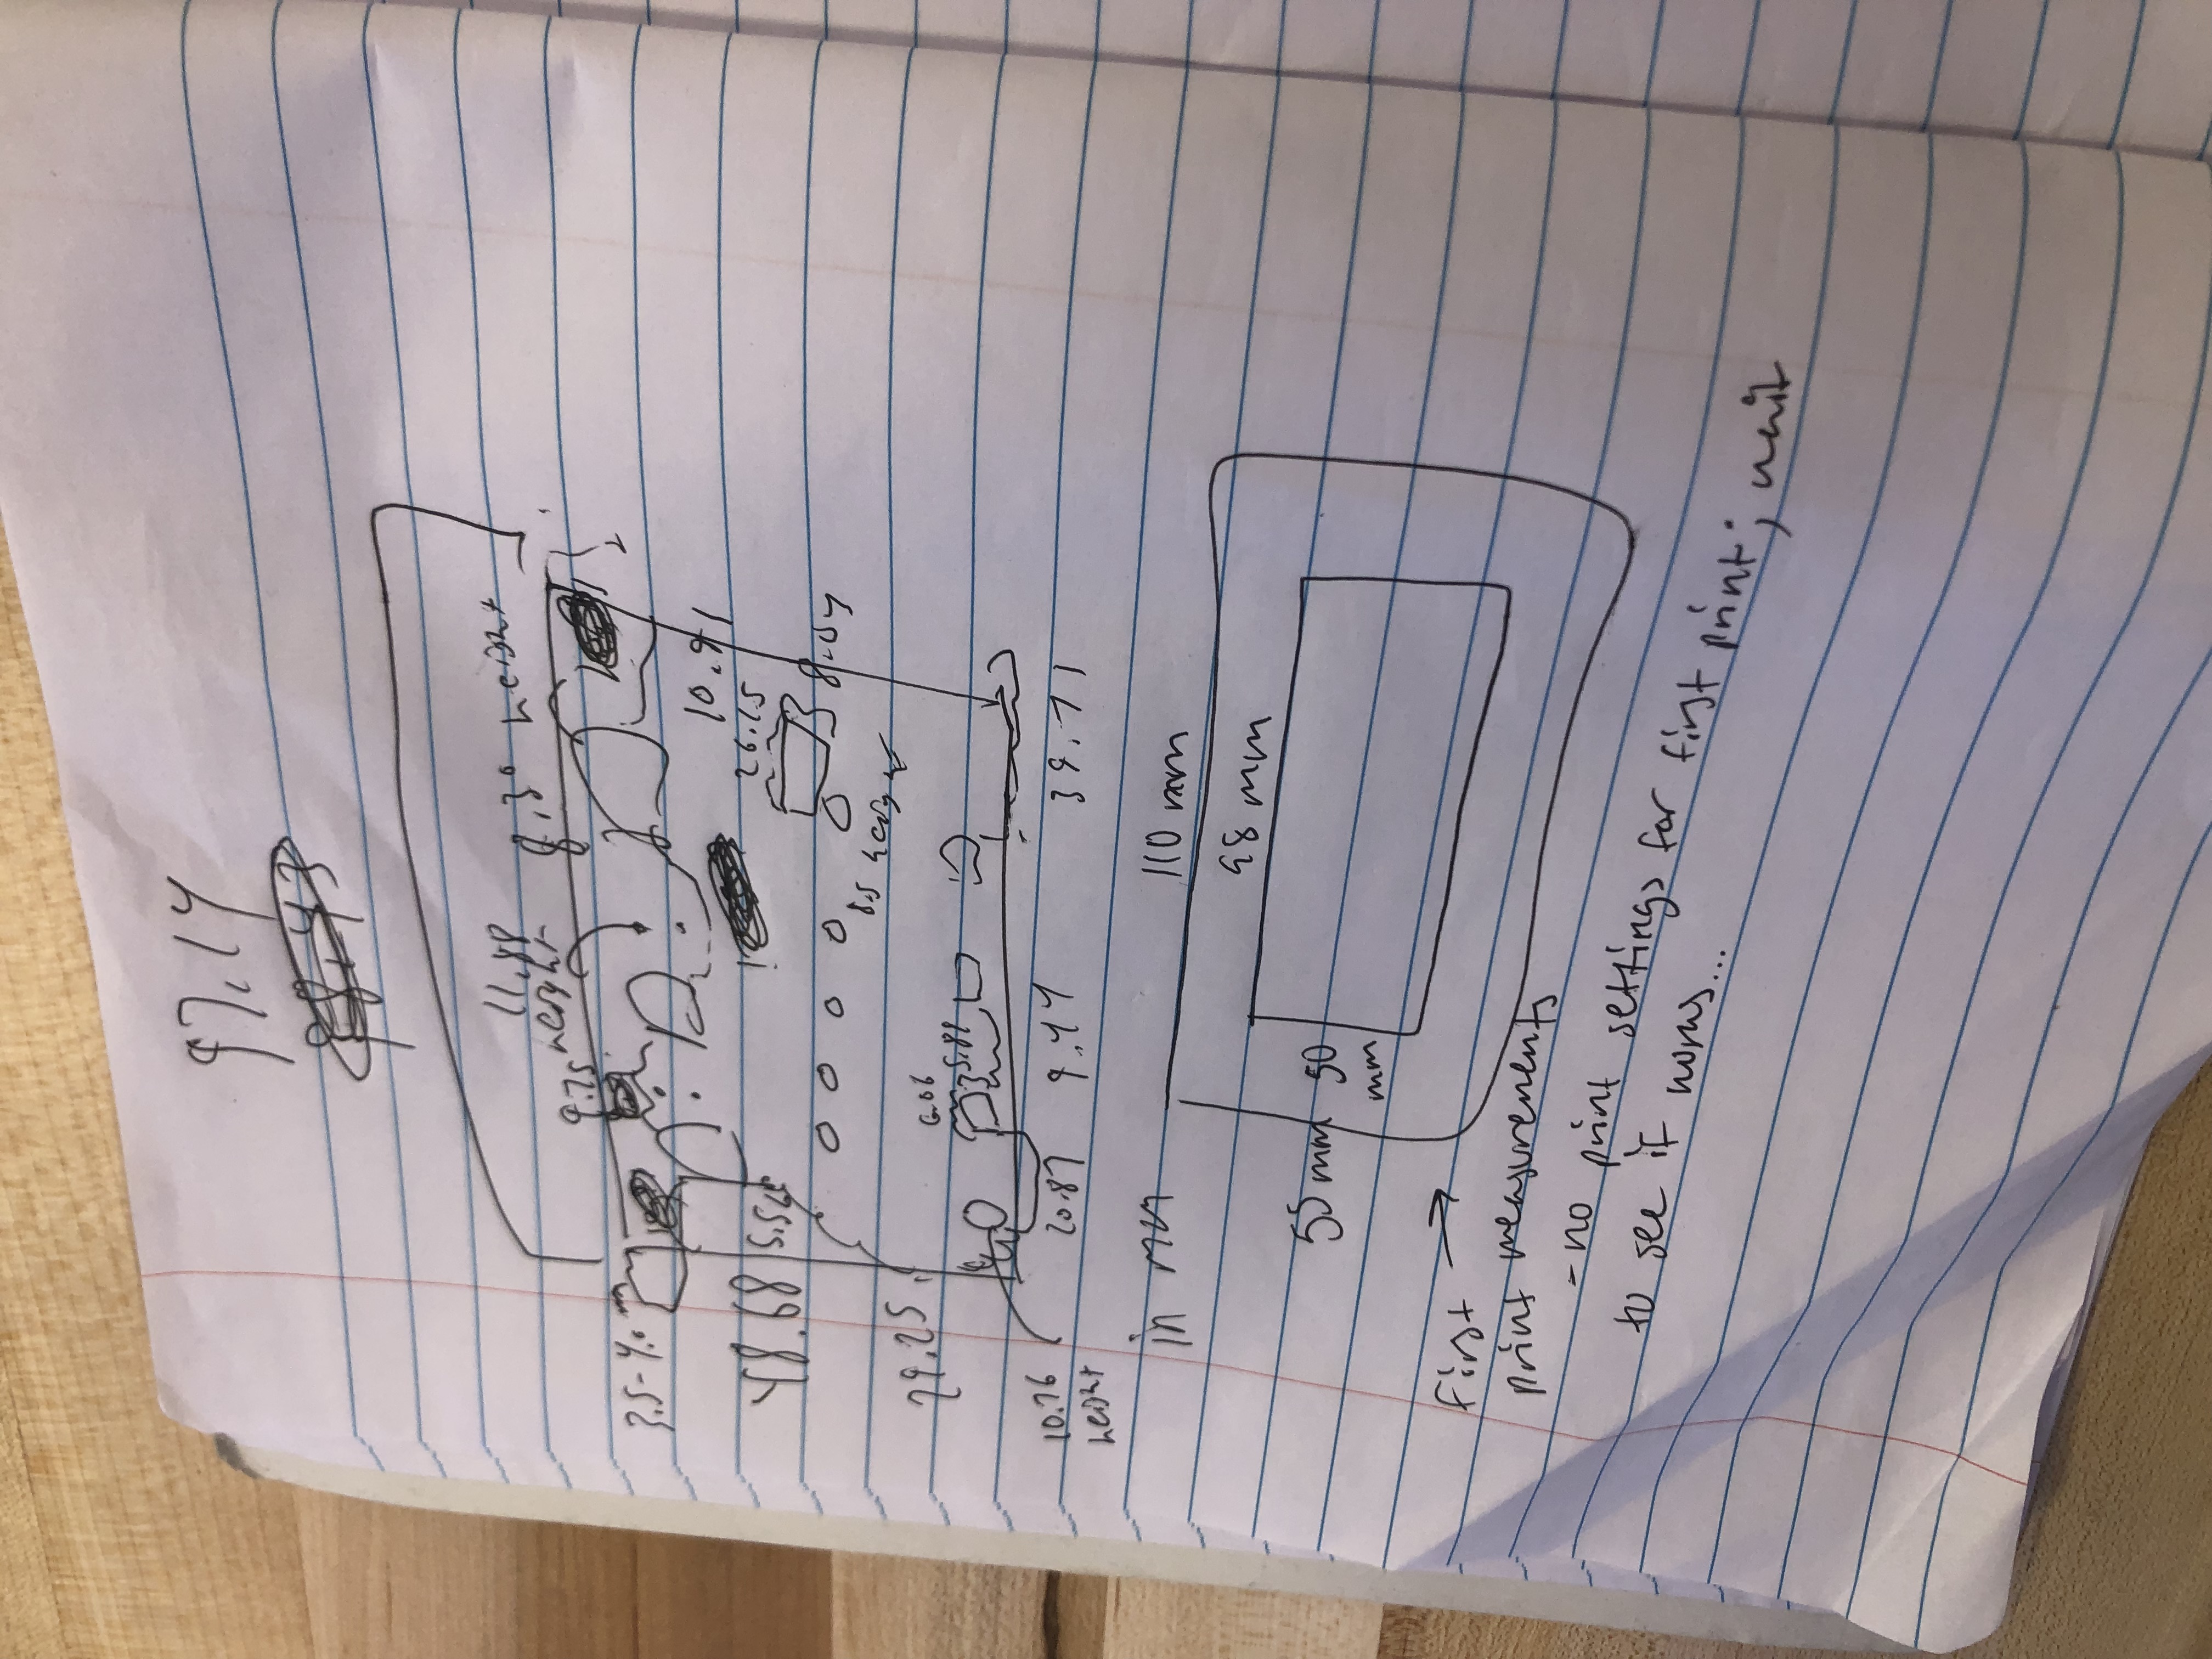 97.14
98.43
11.88
height
8.30 height
9.75
3.5-4.0
10.91
48.68
5.56
26.15
8.04
8.5 height
29.25
6.06
5.89
10.76
height
20.87
9.44
39.71
in mm
110 mm
98 mm
55 mm
50
mm
first
print measurements
- no print settings for first print; wait
to see if works...